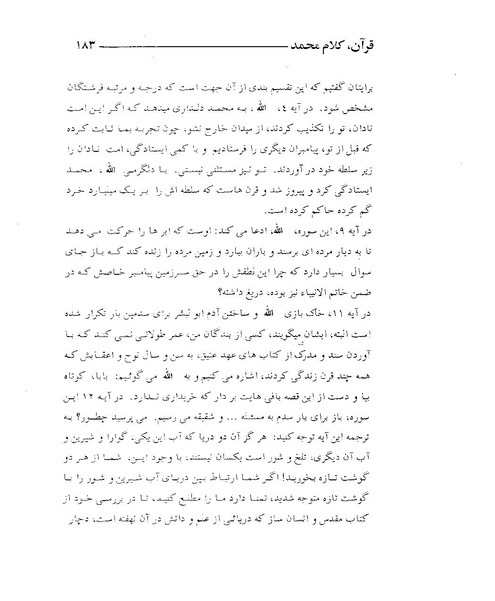 قرآن، کلام محمد ۱۸۳
برایتان گفتیم که این تقسیم بندی از آن جهت است که درجه و مرتبه فرشتگان
مشخص شود. در آیه ۴، الله، به محمد دلداری میدهد که اگر این امت
نادان، تو را تکذیب کردند، از میدان خارج نشو، چون تجربه بما ثابت کرده
که قبل از تو، پیامبران دیگری را فرستادیم و با کمی ایستادگی، امت نادان را
زیر سلطه خود در آوردند. تو نیز مستثنی نیستی. با دلگرمی الله، محمد
ایستادگی کرد و پیروز شد و قرن هاست که سلطه اش را بر یک میلیارد خرد
گم کرده حاکم کرده است.
در آیه ۹، این سوره، الله، ادعا می کند: اوست که ابر ها را حرکت می دهد
تا به دیار مرده ای برسند و باران ببارد و زمین مرده را زنده کند که باز جای
سوال بسیار دارد که چرا این لطفش را در حق سرزمین پیامبر خاصش که در
ضمن خاتم الانبیاء نیز بوده، دریغ داشته؟
در آیه ۱۱، خاک بازی الله و ساختن آدم ابو لبشر برای سدمین بار تکرار شده
است البته، ایشان میگویند، کسی از بندگان من، عمر طولانی نمی کند که با
آوردن سند و مدرک از کتاب های عهد عتیق، به سن و سال نوح و اعقابش که
همه چند قرن زندگی کردند، اشاره می کنیم و به الله می گوئیم: بابا، کوتاه
بیا و دست از این قصه بافی هایت بر دار که خریداری ندارد. در آیه ۱۲ این
سوره، باز برای بار سدم به مسئله ... و شقیقه می رسیم. می پرسید چطور؟ به
ترجمه این آیه توجه کنید: هر گز آن دو دریا که آب این یکی، گوارا و شیرین و
آب آن دیگری، تلخ و شور است یکسان نیستند، با وجود این، شما از هر دو
گوشت تازه بخورید! اگر شما ارتباط بین دریای آب شیرین و شور را با
گوشت تازه متوجه شدید، تمنا دارد ما را مطلع کنید، تا در بررسی خود از
کتاب مقدس و انسان ساز که دریائی از علم و دانش در آن نهفته است، دچار